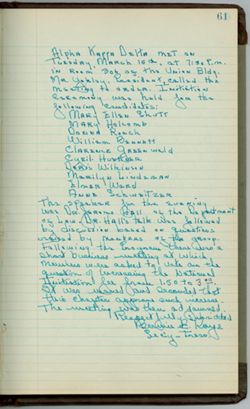 61
Alpha Kappa Delta met on
Tuesday, March 15th, at 7:30 P.M.
in Room 306 of the Union Bldg.
Mr. Yokley, President, called the
meeting to order. Initiation
ceremony was held for the
following candidates:
Mary Ellen Shutt
Mary Holcomb
Donna Roach
William Bennett
Clarence Greenwald
Cyril
Doris Wilkinson
Marilyn Linderman
Elmer Ward
Anne Schweitzer
The speaker for the evening
was Dr. Jerome Hall of the Department
of Law. Dr. Hall's talk was followed
by discussion based on questions
raised by members of the group.
Following the program, there was a
short business meeting at which
members were asked to vote on the
question of increasing the National
Initiation fee from 1.50 to 3.00.
It was moved and seconded that
this chapter approve such increase.
The meeting was then adjourned.
Respectfully submitted
Kaye
Sec'y-Treas.